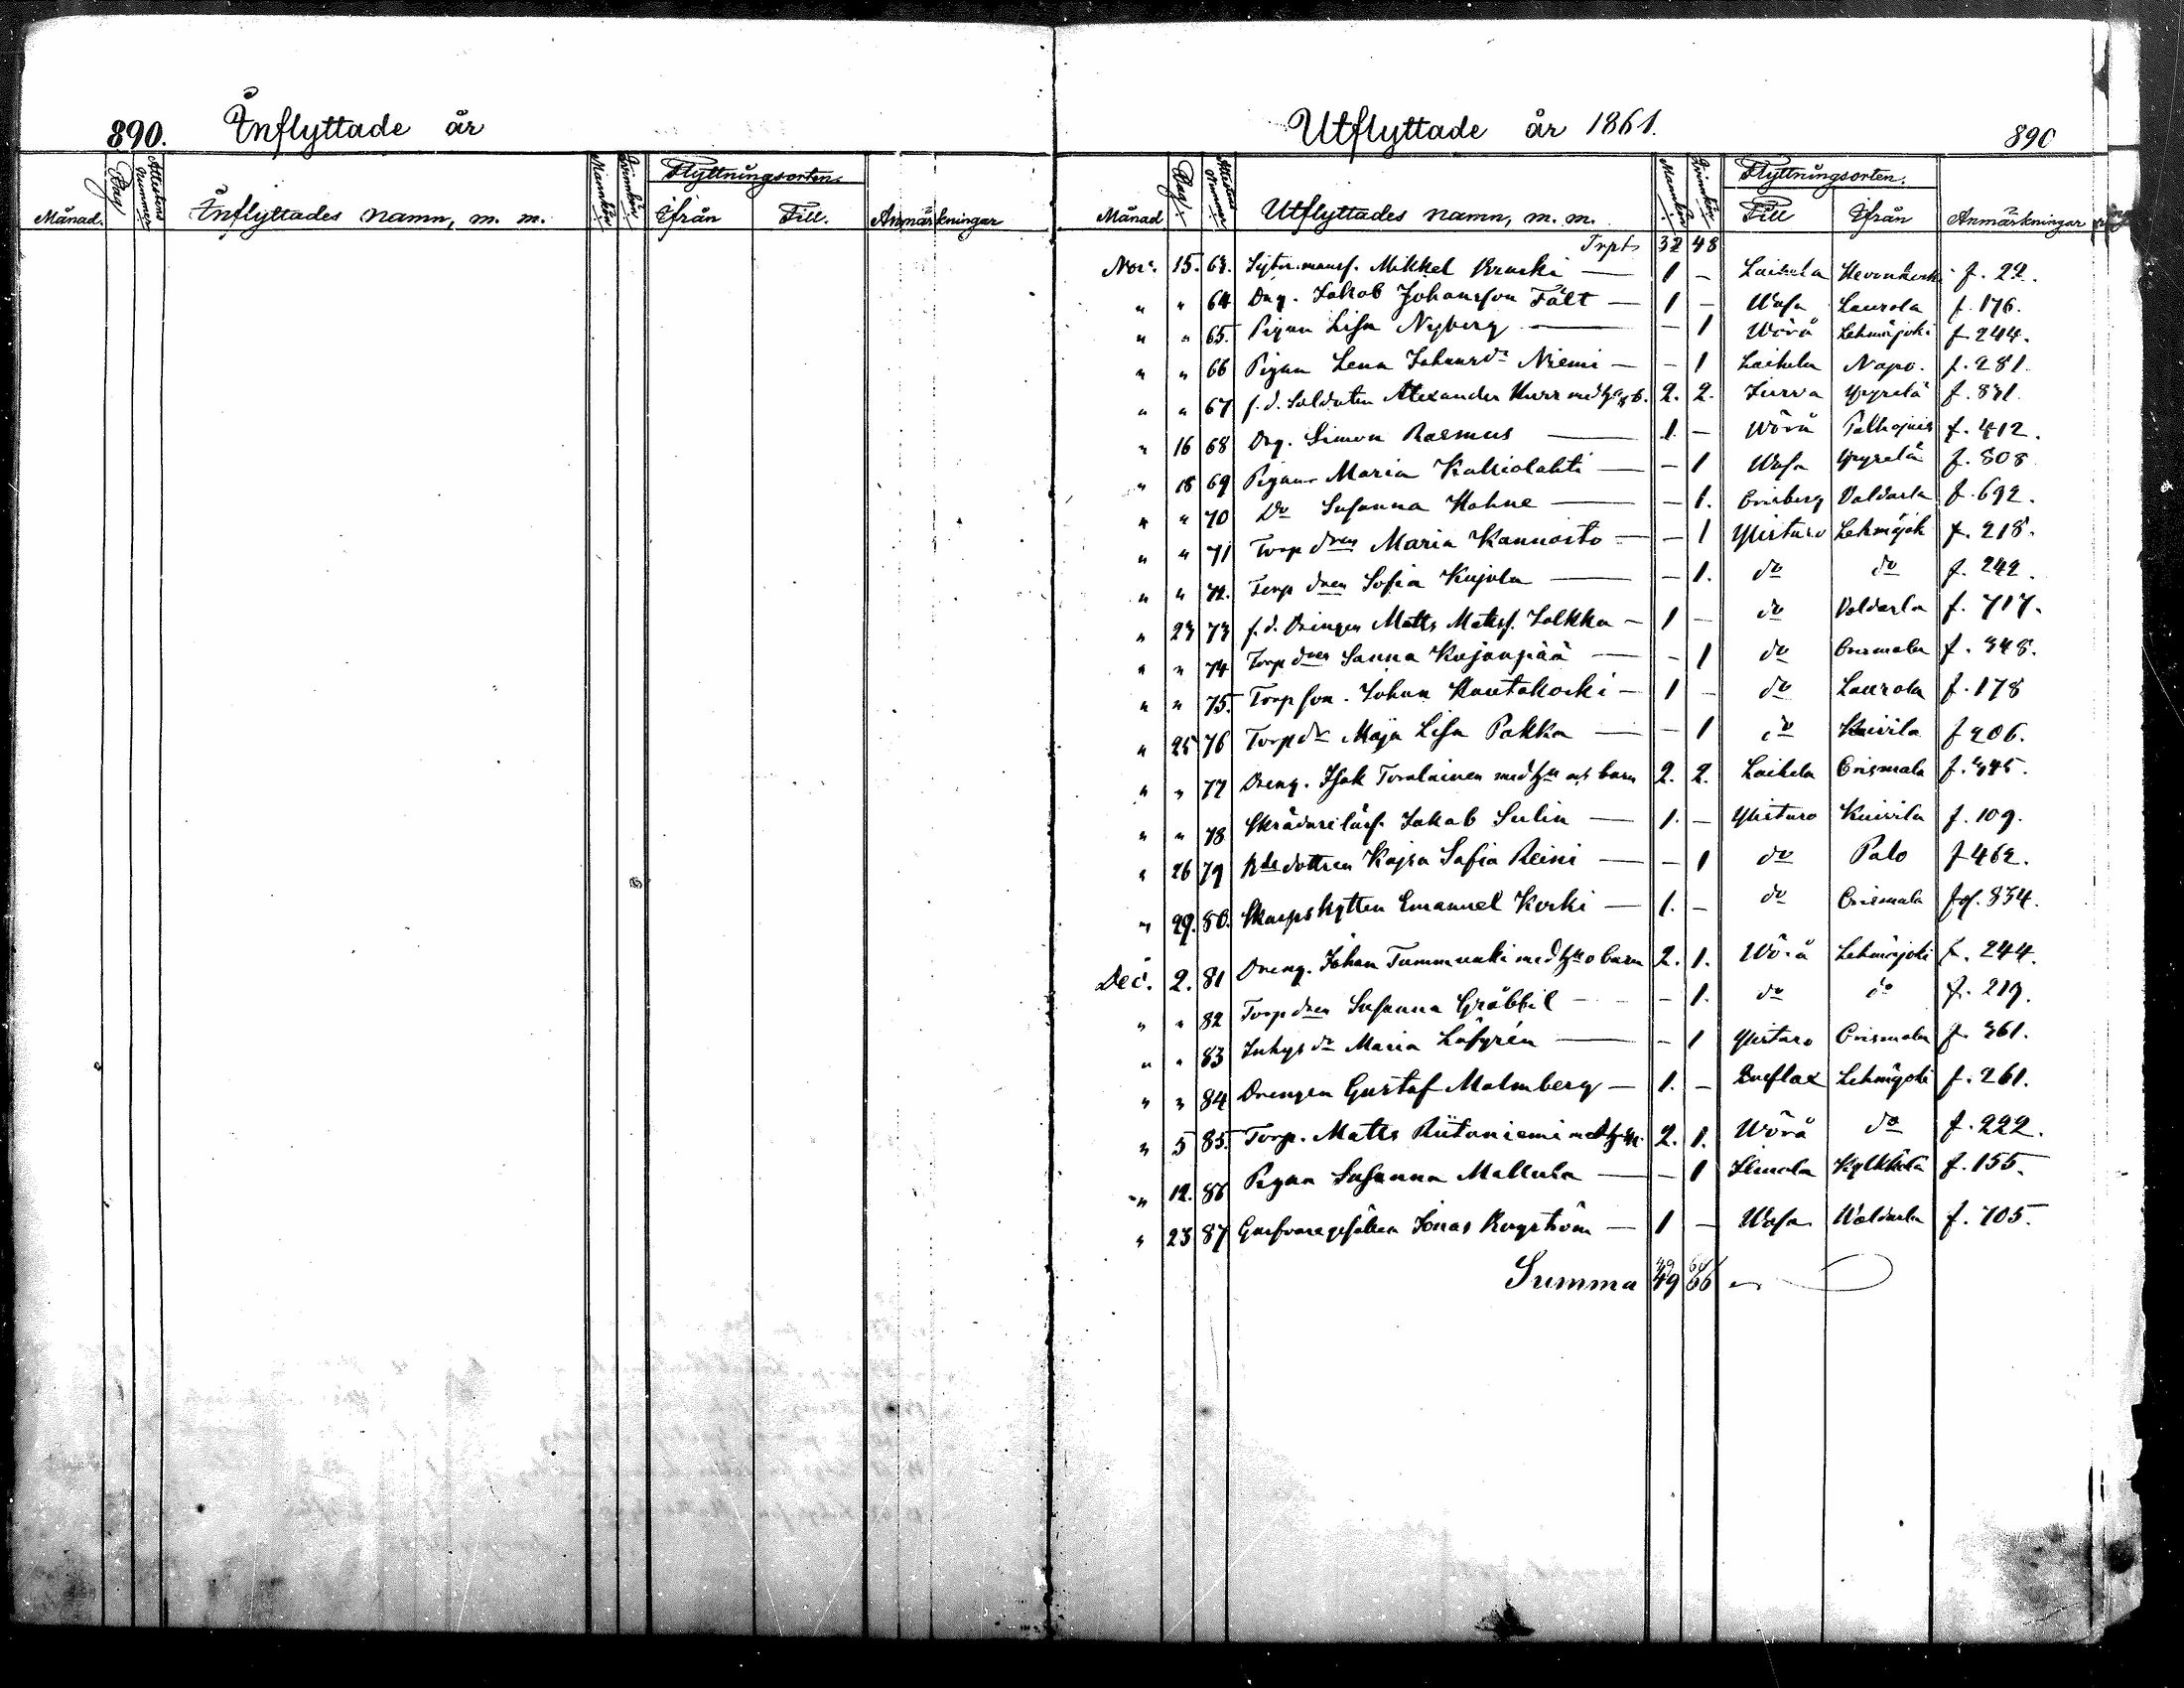 890. Inflyttade år
Månad. Dag Attestens Nummer Inflyttades namn, m. m. Mankön Qvinkön Flyttningsorten. Ifrån Till. Anmärkningar
Utflyttade år 1861. 890
Månad Dag Attestens Nummer Utflyttades namn, m. m. Mankön Qvinkön Flyttningsorten. Till Ifrån Anmärkningar
Trpt 32 48
Nov. 15. 63. Mikkel 1 - Laihela f. 22.
" " 64 Dng. Jakob Johansson Fält 1 - Wasa Laurola f. 176.
" " 65. Pigan Lisa Nyberg - 1 Wörå Lehmäjoki f. 244.
" " 66 Pigan Lena Johansdr Niemi - 1 Laihela Napo. f. 281.
" " 67 f. d. Soldaten Alexander Kurr med 2. 2. Jurva f. 831.
" 16 68 Dng. Simon Rasmus 1. - Wörå f. 412.
" 18 69 Pigan Maria Kakiolahti - 1 Wasa f. 808
" " 70 Do Susanna Hahne - 1. Valdarla f. 692.
" " 71 Torp dren Maria Kannosto - 1 Ylistaro Lehmäjok f. 218.
" " 72. Torp dren Sofia Kujala - 1. do do f. 242.
" 23 73 f. d. Drängen Matts Matsf. Jalkka 1 - do Valdarla f. 717.
" " 74 Torp dren Sanna Kojonpää - 1 do Orismala f. 348.
" " 75. Torp son. Johan Hautakoski 1 - do Laurola f. 178
" 25 76 Torp dr Maja Lisa Pakka - 1 do Kuivila f 206.
" " 77 Dreng. Isak med hu och barn 2. 2. Laihela Orismala f. 345.
" " 78 Skrädarelärl. Jakob Sulin 1. - Ylistaro Kuivila f. 109.
" 26 79 dottren Kajsa Sofia Reini - 1 do Palo f 462.
" 29. 80. Skarpskytten Emanuel Koski 1. - do Orismala f. 834.
Dec. 2. 81 Dreng. Johan Tummunki med hu o barn 2. 1. Wörå Lehmäjoki f. 244.
" " 82 Torp dren Susanna Gräbbil - 1. do do f. 219.
" " 83 Inhys dr Maria Löfgrén - 1 Ylistaro Orismala f. 361.
" " 84 Drengen Gustaf Malmberg 1. - Qveflax Lehmäjoki f. 261.
" 5 85. Torp. Matts Riitaniemi med 2. 1. Wörå do f. 222.
" 12. 86 Pigan Susanna Mallula - 1 Ilmola Kylkkälä f. 155.
" 23 87 Garfvaregesällen Jonas Rogström 1 - Wasa Waldarla f. 705.
Summa 49 66